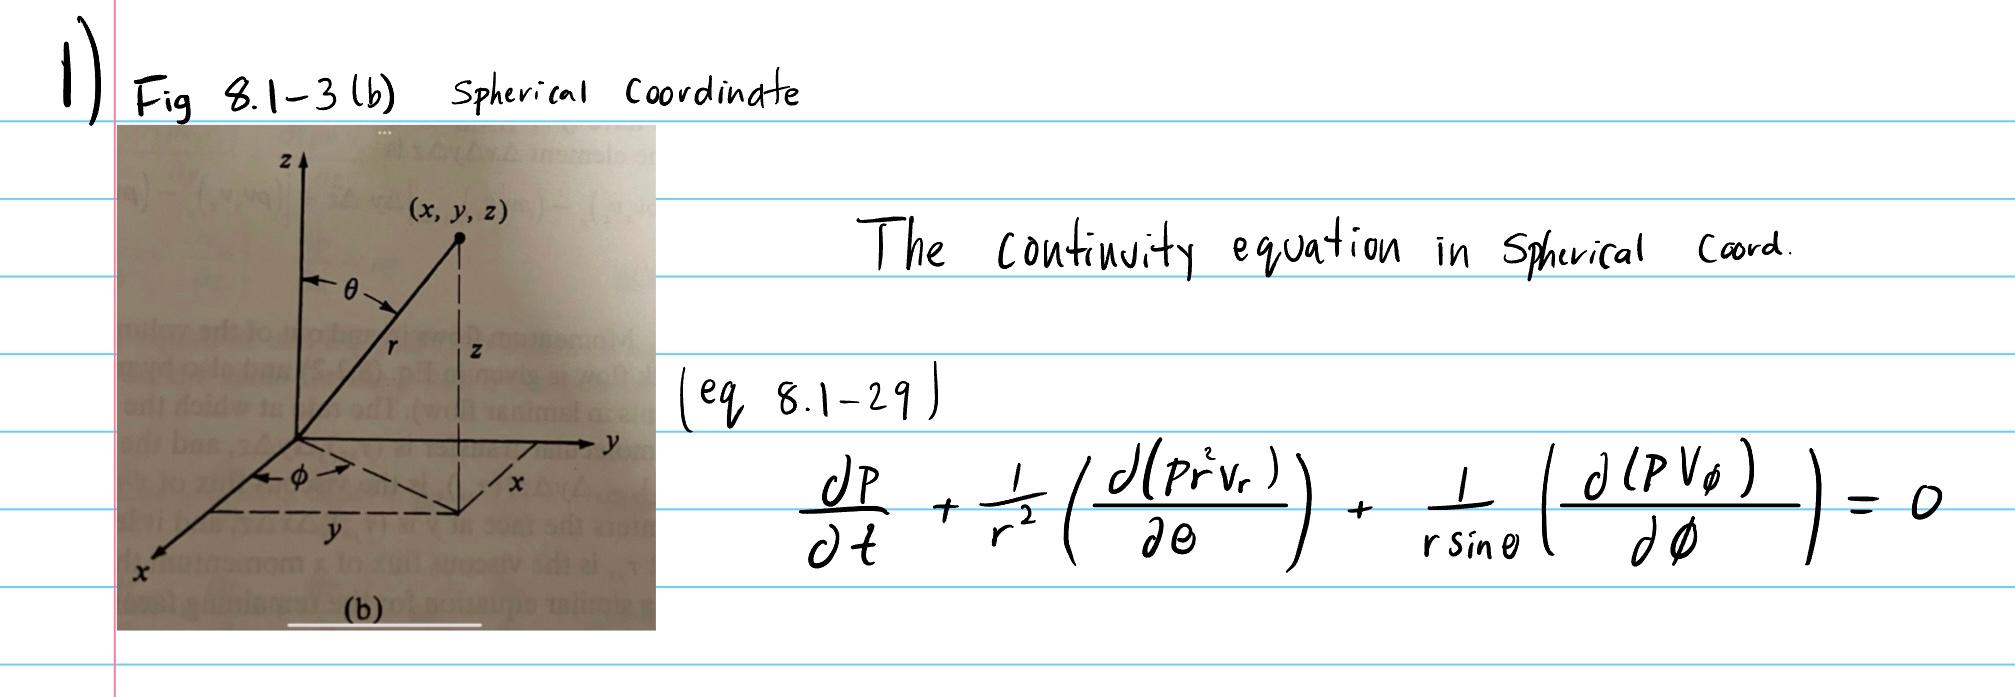 1) Fig 8.1-3 (b) Spherical Coordinate
z
(x, y, z)
θ
r
z
y
φ
x
y
x
(b)
The continuity equation in Spherical Coord.
(eq 8.1-29)
∂ρ/∂t + 1/r² (∂(ρr²Vr)/∂θ) + 1/(r sinθ) (∂(ρVφ)/∂φ) = 0